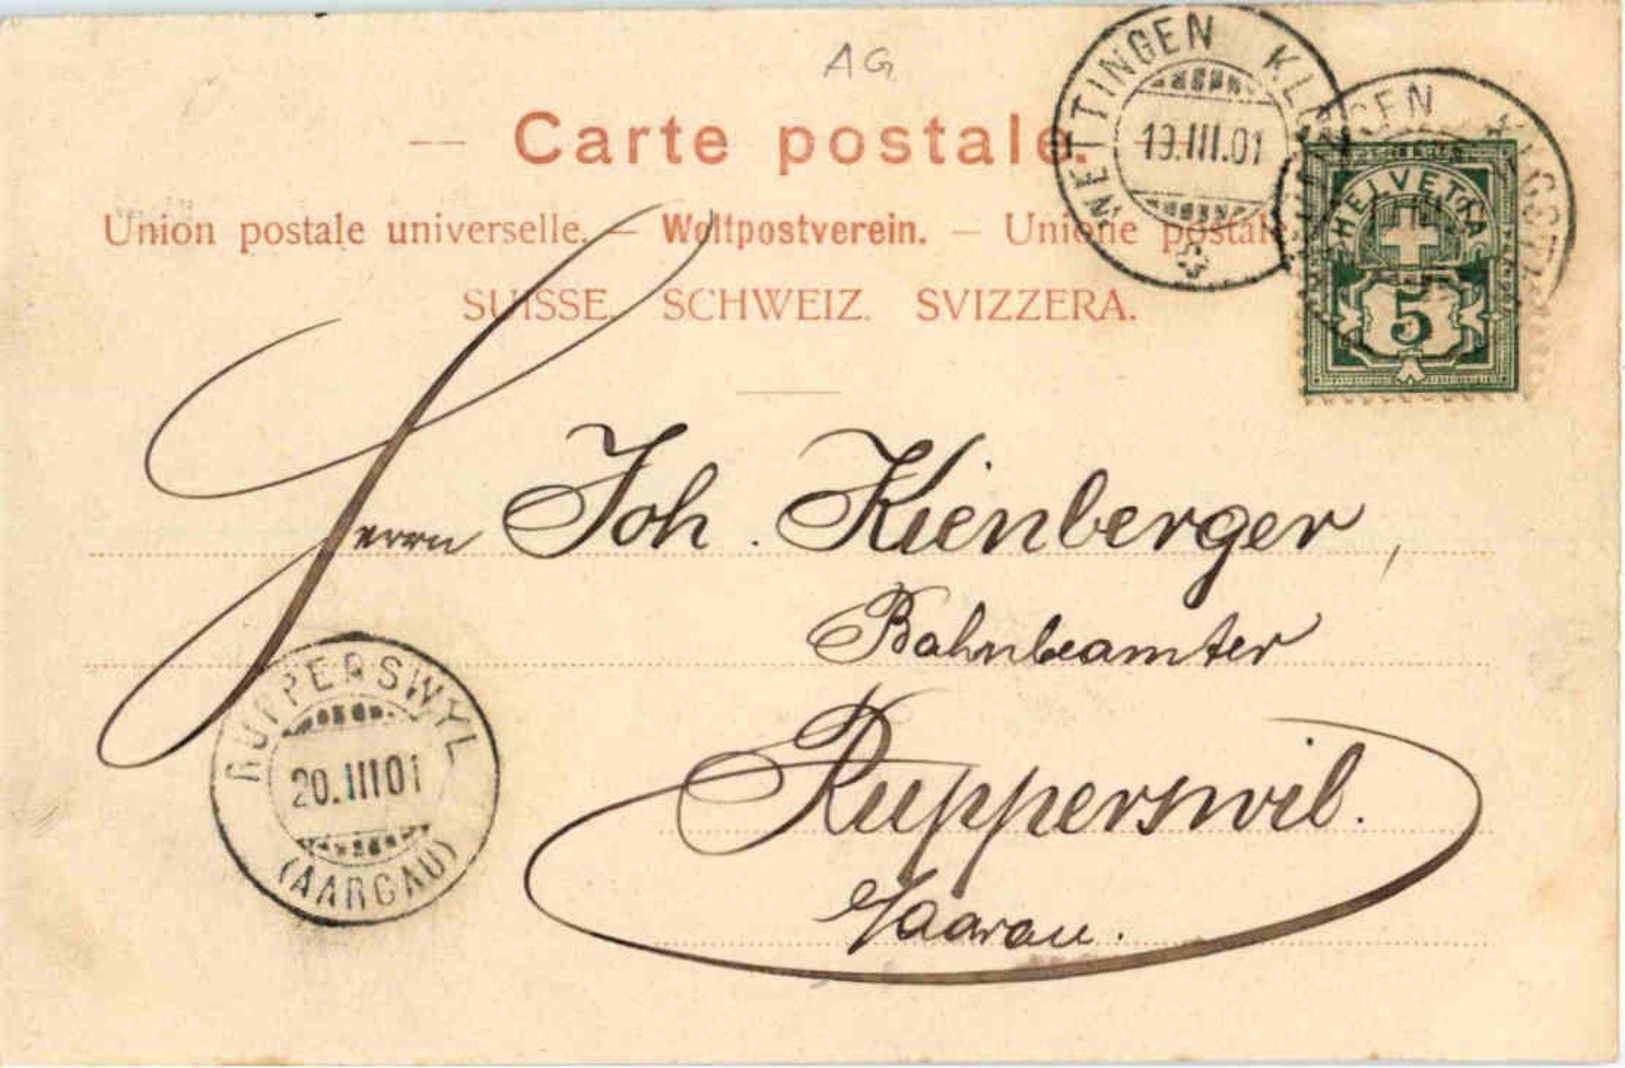 AG
— Carte postale.
Union postale universelle. — Weltpostverein. — Unione postale
SUISSE. SCHWEIZ. SVIZZERA.
WETTINGEN
19.III.01
HELVETIA
5
Herrn Joh. Kienberger,
Bahnbeamter
Rupperswil.
b/Aarau.
RUPPERSWYL
20.III01
(AARGAU)